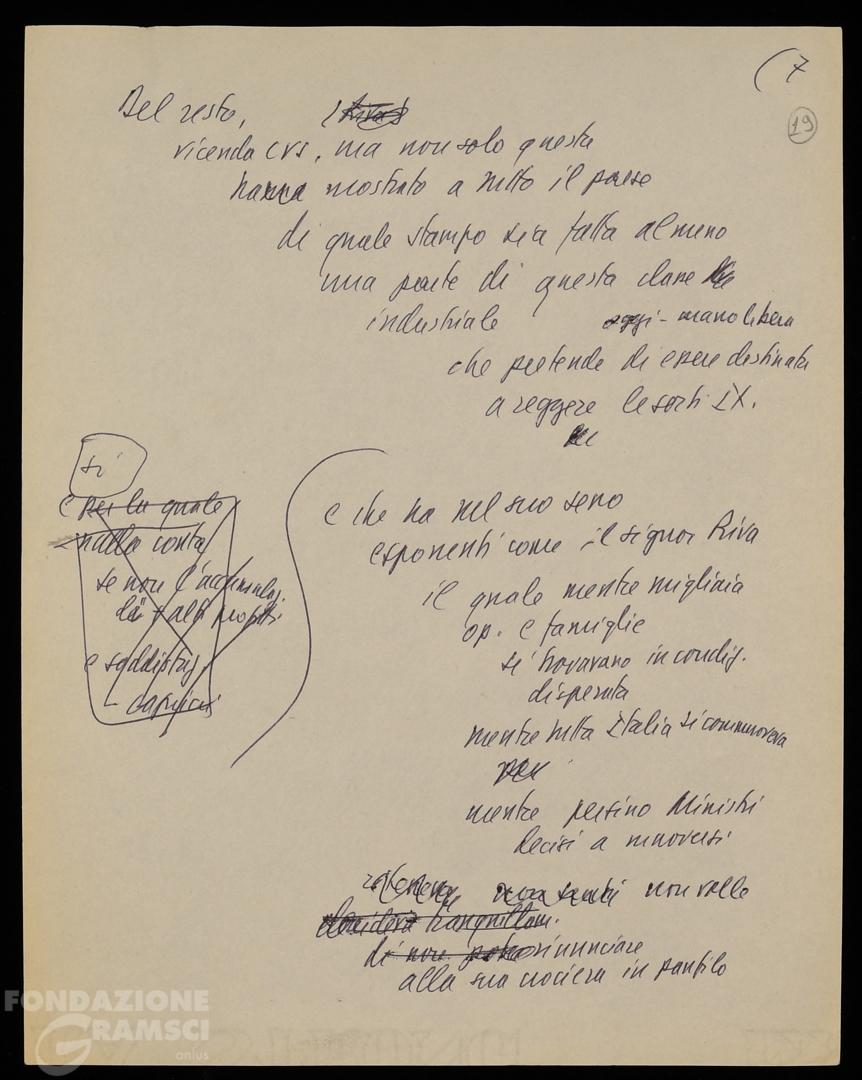 (7
19
Del resto, (Riva)
vicenda CVS, ma non solo questa
hanno mostrato a tutto il paese
di quale stampo sia fatta almeno
una parte di questa classe
industriale oggi - mano libera
che pretende di essere destinata
a reggere le sorti IX.
sì
e per la quale
nulla conta
se non l'accumulaz.
di + alti profitti
e soddisfaz.
- capricci
e che ha nel suo seno
esponenti come il signor Riva
il quale mentre migliaia
op. e famiglie
si trovavano in condiz.
disperata
mentre tutta Italia si commuoveva
mentre persino Ministri
decisi a muoversi
non sentì non volle
tranquillam.
di non rinunciare
alla sua crociera in panfilo
FONDAZIONE
GRAMSCI
onlus